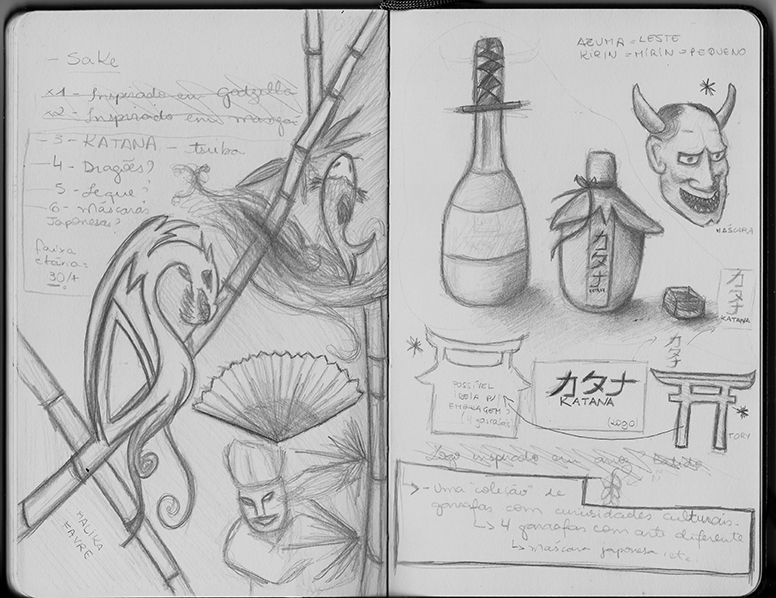 - Sake
x1 - Inspirado em Godzilla
x2 - Inspirado em mangá
- 3 - KATANA - tsuba
- 4 - Dragões?
- 5 - Leque?
- 6 - Máscaras
Japonesas?
faixa
etária:
30/+
MALIKA
FAVRE
AZUMA = LESTE
KIRIN = MIRIN = PEQUENO
MÁSCARA
カタナ
カタナ
KATANA
カタナ
POSSÍVEL
IDEIA P/
EMBALAGEM?
(4 garrafas)
カタナ
KATANA
(Logo)
TORY
Logo inspirado em
- Uma "coleção" de
garrafas com curiosidades culturais.
↳ 4 garrafas com arte diferente
↳ máscara japonesa, etc.